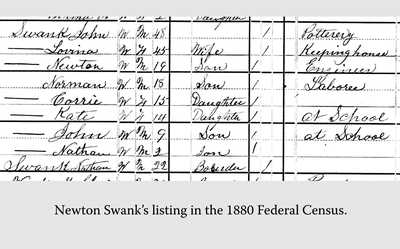 Daughter
Swank John W M 48 1 Potterery
— Lovina W F 45 Wife 1 Keeping house
— Newton W M 19 Son 1 Engineer
— Norman W M 18 Son 1 Laborer
— Corrie W F 15 Daughter 1
— Kate W F Daughter 1 At School
— John W M 9 Son 1 at School
— Nathan W M 2 Son 1
Swank Nathan W M 22 Boarder 1
Newton Swank's listing in the 1880 Federal Census.